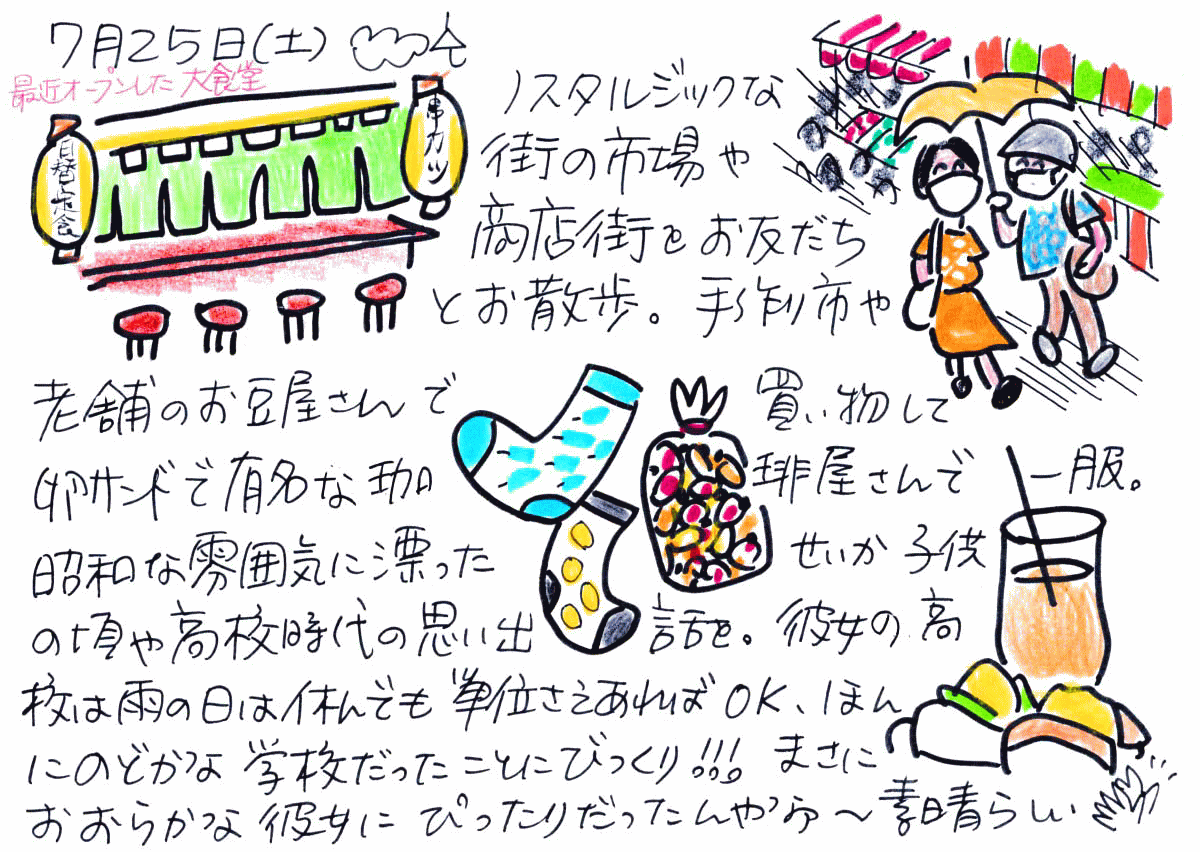 7月25日(土)
最近オープンした大食堂
日替定食
串カツ
ノスタルジックな
街の市場や
商店街をお友だち
とお散歩。手作り市や
老舗のお豆屋さんで買い物して
卵サンドで有名な珈琲屋さんで一服。
昭和な雰囲気に漂ったせいか子供
の頃や高校時代の思い出話を。彼女の高
校は雨の日は休んでも単位さえあればOK、ほん
にのどかな学校だったことにびっくり!!!まさに
おおらかな彼女にぴったりだったんやかぁ～素晴らしい